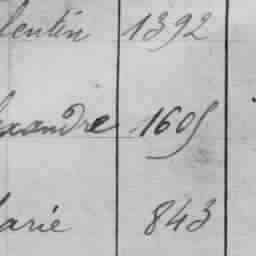 lentin 1392
lexandre 1605
arie 843